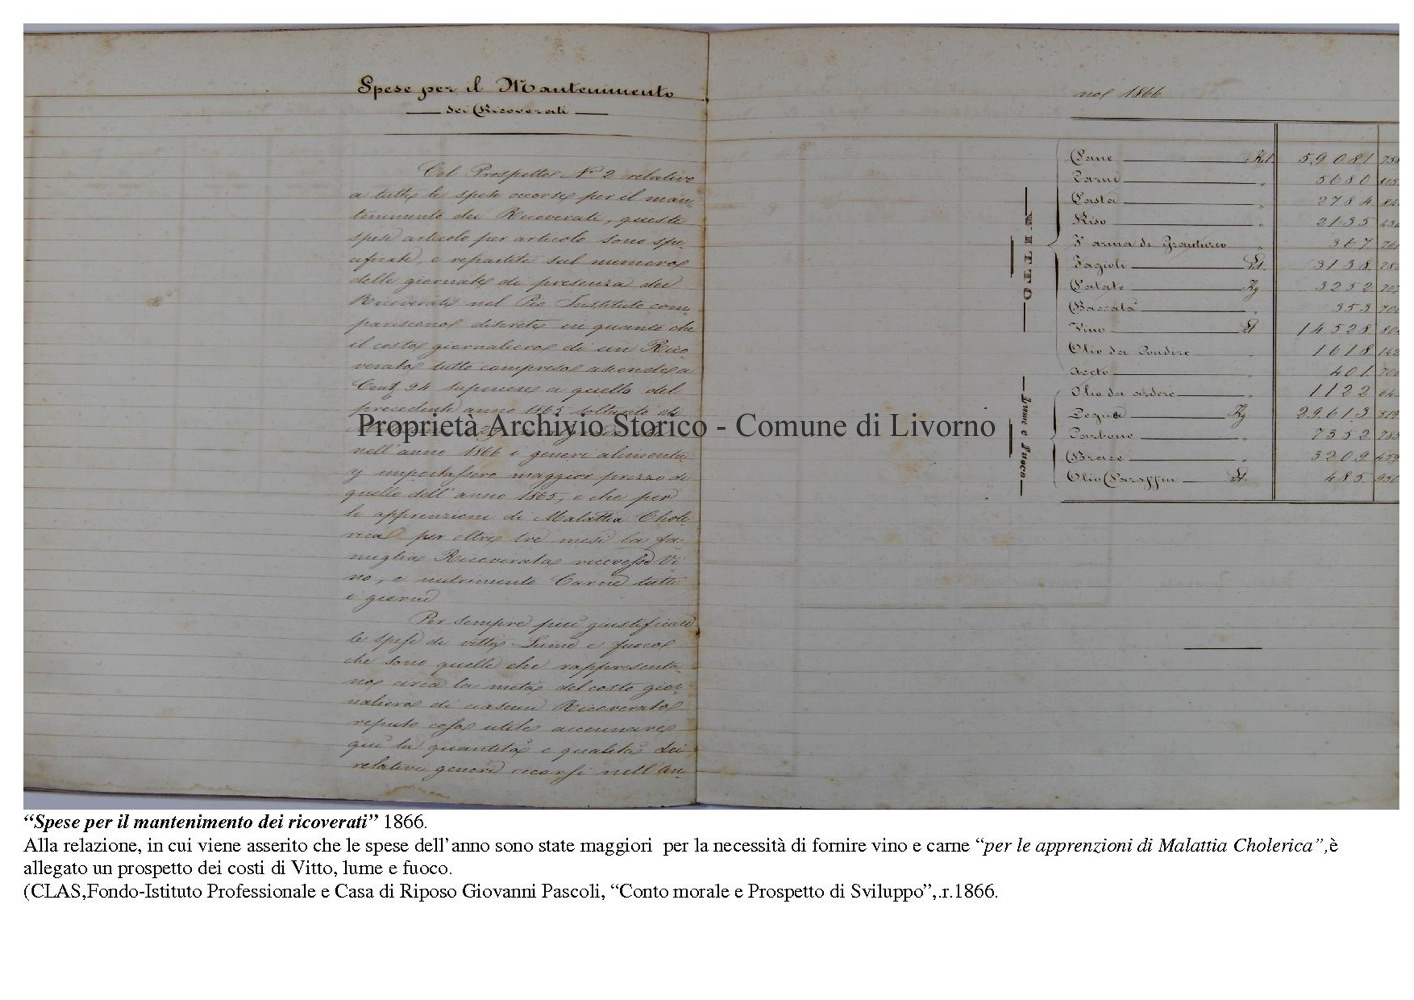 Spese per il Mantenimento
dei Ricoverati
Col Prospetto N° 2 relativo
a tutte le spese occorse per il man-
tenimento dei Ricoverati, queste
spese articolo per articolo sono spe-
cificate, e repartite sul numero
delle giornate di presenza dei
Ricoverati nel Pio Instituto com-
pariscono discrete in quanto che
il costo giornaliero di un Rico-
verato tutto compreso ascende a
Cent. 94 superiore a quello del
precedente anno 1865 soltanto di
nell'anno 1866 i generi alimenta-
rj importassero maggior prezzo di
quello dell'anno 1865, e che per
le apprenzioni di Malattia Chole-
rica per oltre tre mesi la fa-
miglia Ricoverata ricevesse Vi-
no, e nutrimento Carne tutti
i giorni
Per sempre più giustificare
le spese di vitto Lume e fuoco
che sono quelle che rappresenta-
no circa la metà del costo gior-
naliero di ciascun Ricoverato
reputo cosa utile accennare
qui la quantità e qualità dei
relativi generi occorsi nell'an-
no 1866
VITTO
Pane Kil. 59081
Carne " 5680
Pasta " 2784
Riso " 2135
Farina di Granturco " 367
Fagioli Lt. 3138
Patate Kg 3252
Baccalà " 353
Vino Lt 14528
Olio da Condire " 1618
Aceto " 401
Lume e Fuoco
Olio da ardere " 1122
Legna Kg 29613
Carbone " 7352
Brace " 3209
Olio Paraffin Lt. 485
Proprietà Archivio Storico - Comune di Livorno
“Spese per il mantenimento dei ricoverati” 1866.
Alla relazione, in cui viene asserito che le spese dell’anno sono state maggiori per la necessità di fornire vino e carne “per le apprenzioni di Malattia Cholerica”,è
allegato un prospetto dei costi di Vitto, lume e fuoco.
(CLAS,Fondo-Istituto Professionale e Casa di Riposo Giovanni Pascoli, “Conto morale e Prospetto di Sviluppo”,.r.1866.